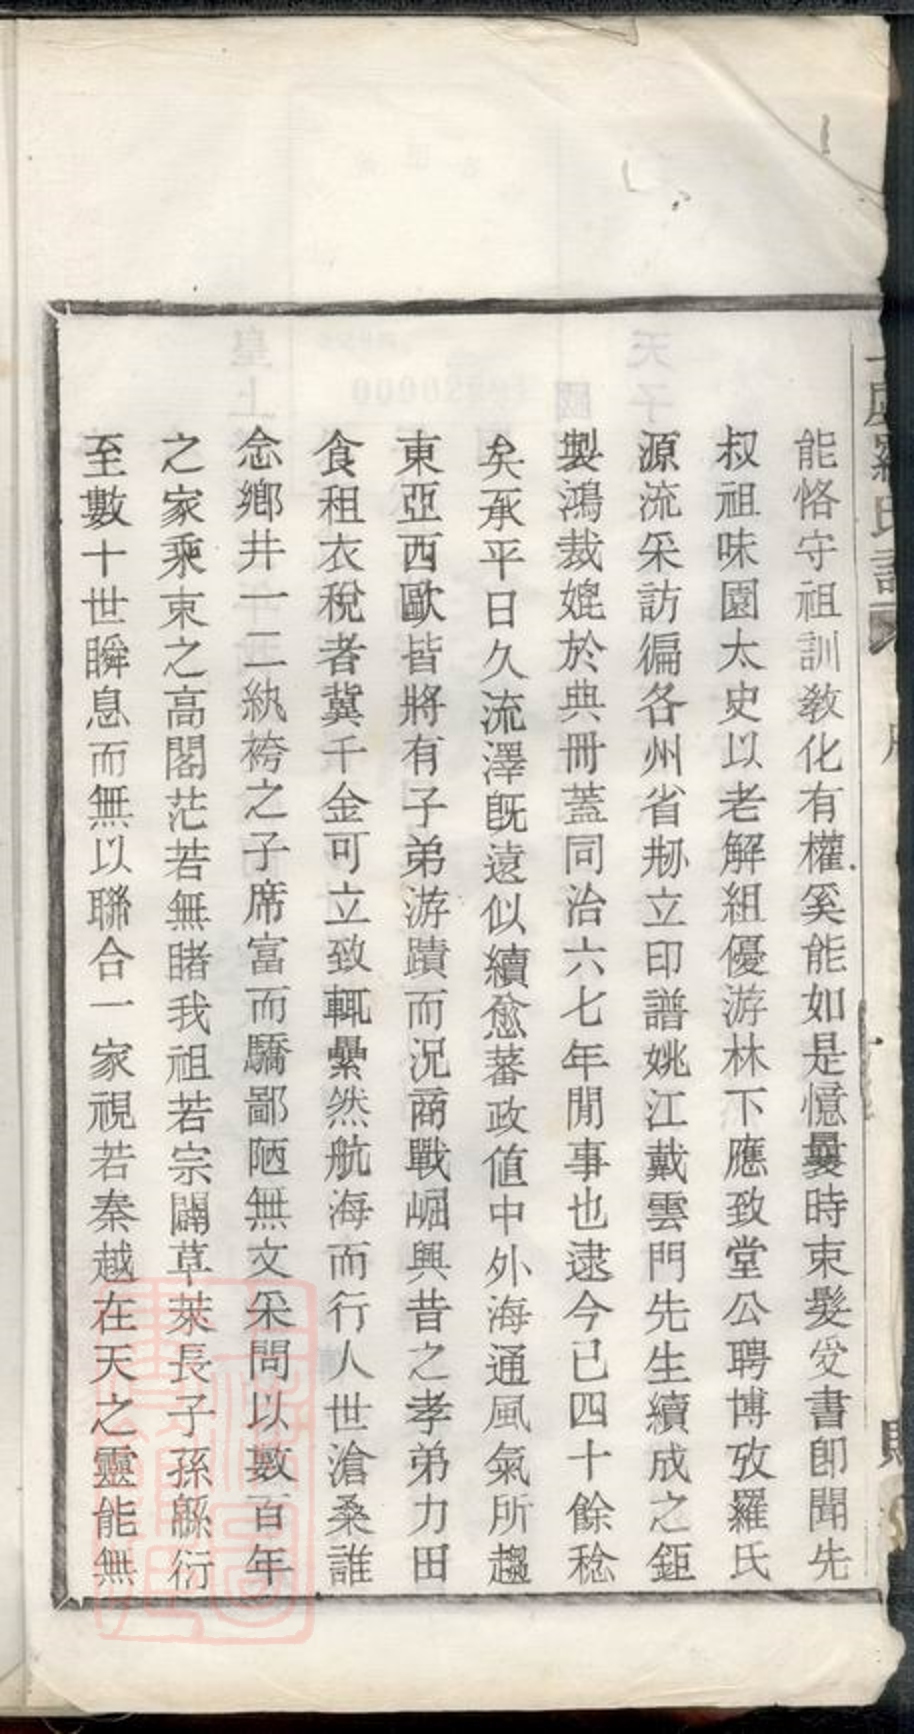 能恪守祖訓敎化有權奚能如是憶曩時束髮受書卽聞先
叔祖味園太史以老解組優游林下應致堂公聘博攷羅氏
源流采訪徧各州省剙立印譜姚江戴雲門先生續成之鉅
製鴻裁媲於典冊蓋同治六七年閒事也逮今已四十餘稔
矣承平日久流澤旣遠似續愈蕃政値中外海通風氣所趨
東亞西歐皆將有子弟游蹟而況商戰崛興昔之孝弟力田
食租衣稅者冀千金可立致輒纍然航海而行人世滄桑誰
念鄕井一二紈袴之子席富而驕鄙陋無文采問以數百年
之家乘束之高閣茫若無睹我祖若宗闢草萊長子孫緜衍
至數十世瞬息而無以聯合一家視若秦越在天之靈能無